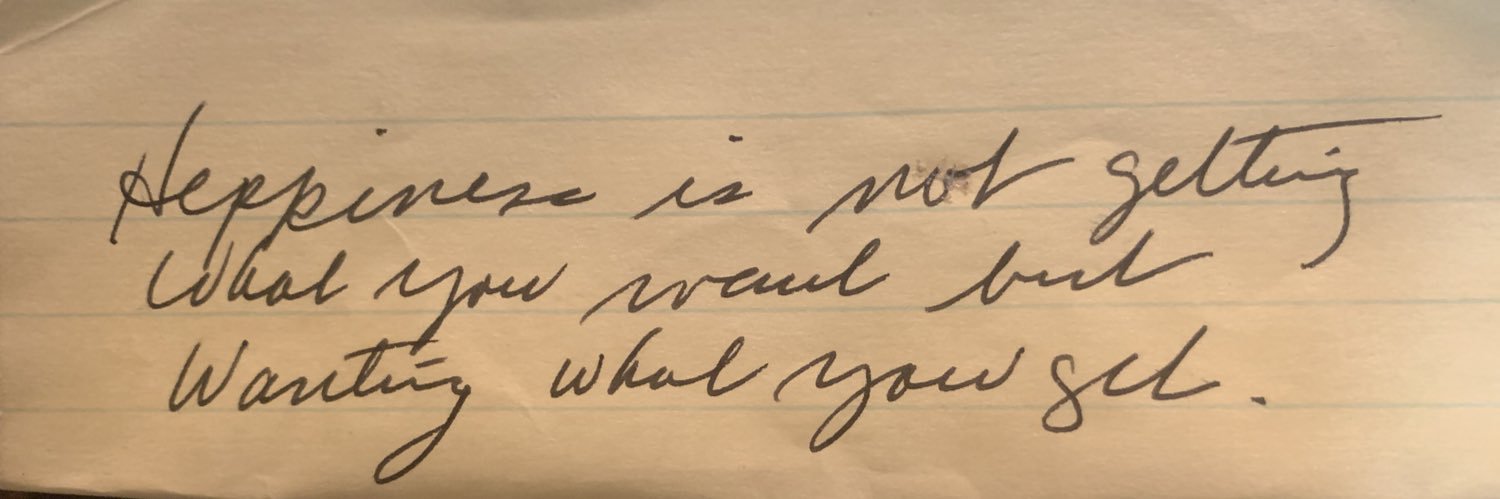 Happiness is not getting
What you want but
Wanting what you get.